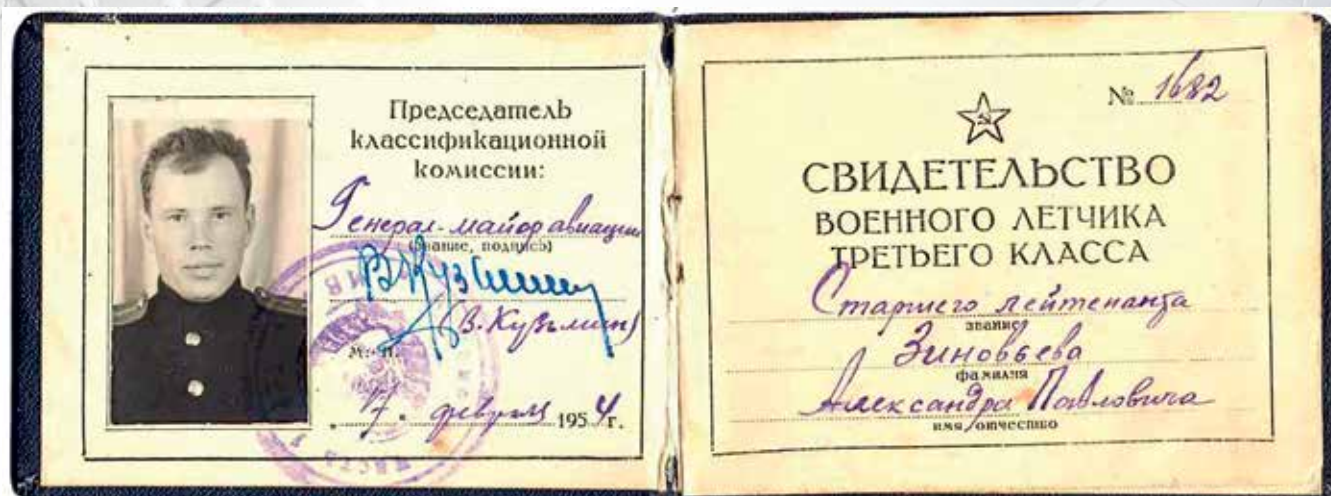 Председатель
классификационной
комиссии:
Генерал-майор авиации
(звание, подпись)
В. Кузьмин
(В. Кузьмин)
М. П.
"17" февраля 1954 г.
№ 1682
СВИДЕТЕЛЬСТВО
ВОЕННОГО ЛЕТЧИКА
ТРЕТЬЕГО КЛАССА
Старшего лейтенанта
звание
Зиновьева
фамилия
Александра Павловича
имя, отчество